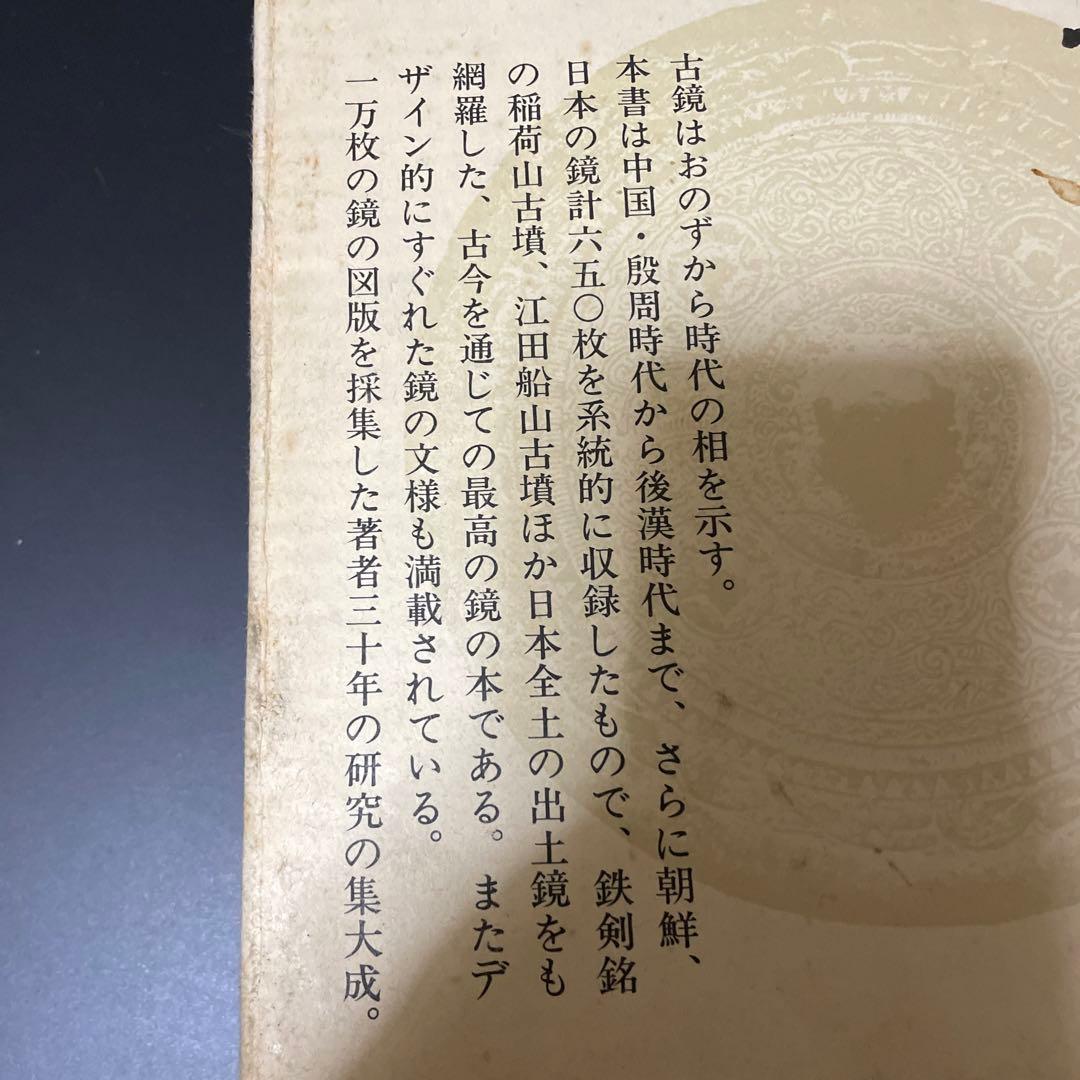 古鏡はおのずから時代の相を示す。
本書は中国・殷周時代から後漢時代まで、さらに朝鮮、
日本の鏡計六五〇枚を系統的に収録したもので、鉄剣銘
の稲荷山古墳、江田船山古墳ほか日本全土の出土鏡をも
網羅した、古今を通じての最高の鏡の本である。またデ
ザイン的にすぐれた鏡の文様も満載されている。
一万枚の鏡の図版を採集した著者三十年の研究の集大成。